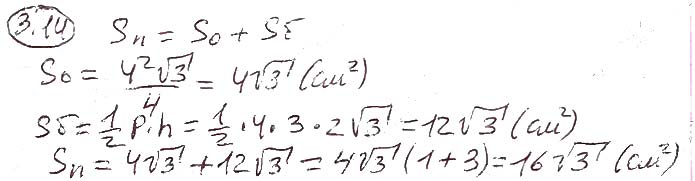 3.14 Sп = So + Sб
So = 4²√3/4 = 4√3 (см²)
Sб = 1/2 P·h = 1/2 · 4 · 3 · 2√3 = 12√3 (см²)
Sп = 4√3 + 12√3 = 4√3 (1+3) = 16√3 (см²)